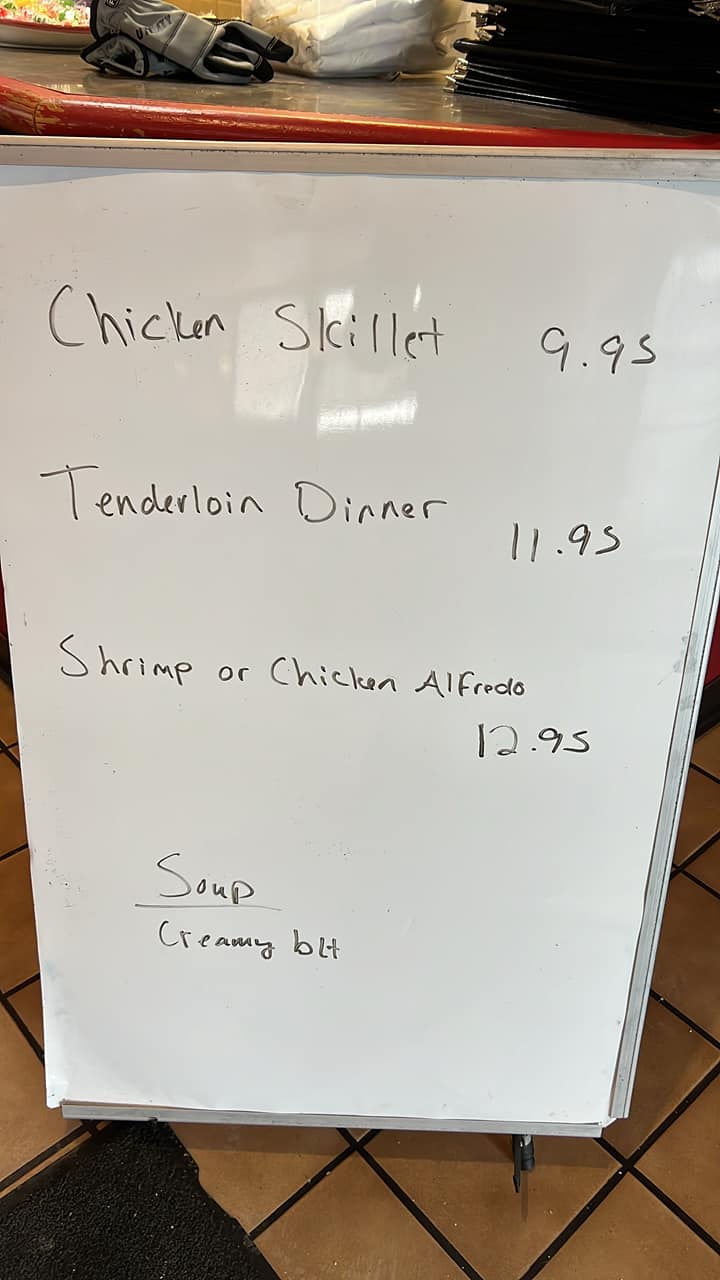 UNITY
Chicken Skillet 9.95
Tenderloin Dinner
11.95
Shrimp or Chicken Alfredo
12.95
Soup
Creamy blt